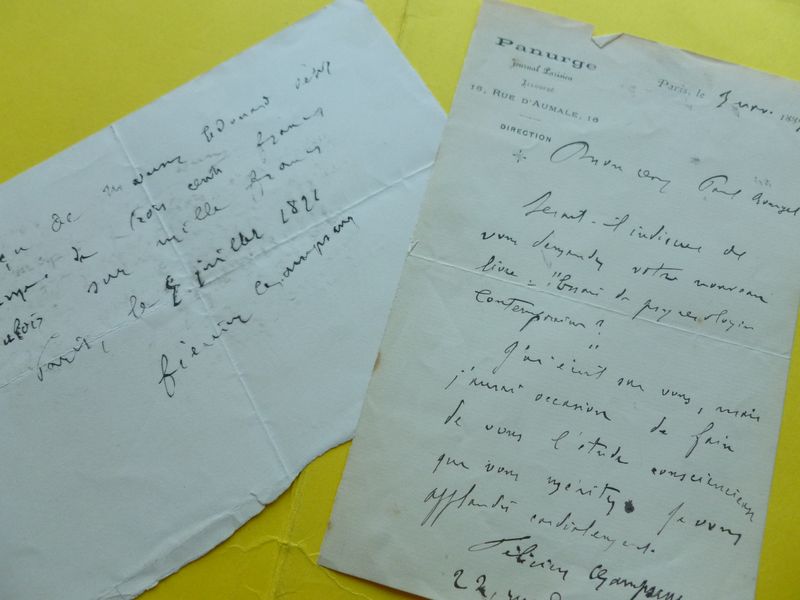 de
trois cents francs
sur mille francs
Paris, le 8 juillet 1891
Félicien Champsaur
Panurge
Journal Parisien
16, RUE D'AUMALE, 16
DIRECTION
Paris, le 3 nov. 188
Mon cher Paul Bourget
Serait-il indiscret de
vous demander votre nouveau
livre : "Essais de psychologie
Contemporaine"?
J'ai écrit sur vous, mais
j'aurai occasion de faire
de vous l'étude consciencieuse
que vous méritez. Je vous
applaudis cordialement.
Félicien Champsaur
22, rue